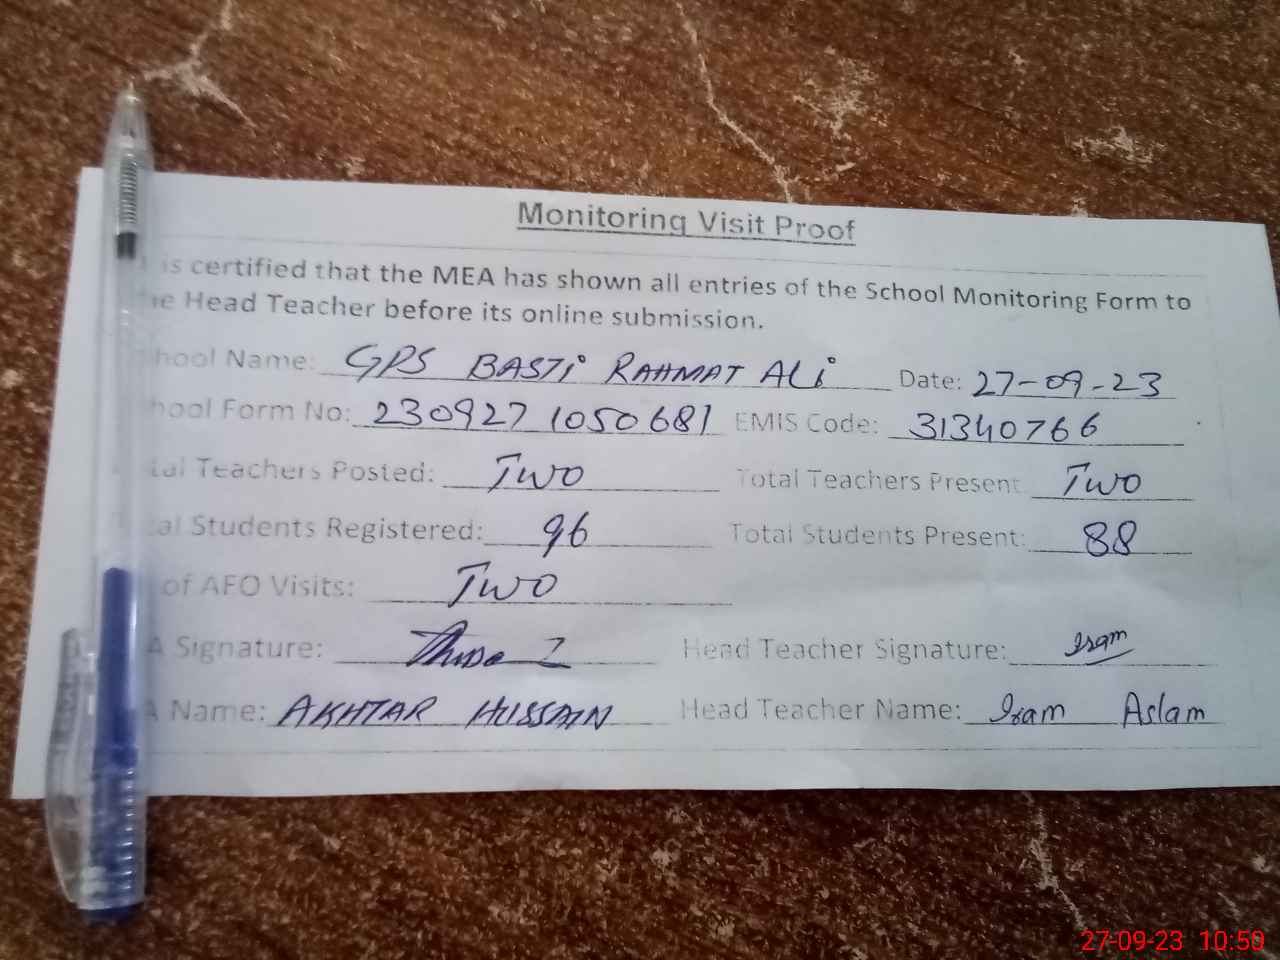 Monitoring Visit Proof
is certified that the MEA has shown all entries of the School Monitoring Form to
Head Teacher before its online submission.
hool Name: GPS BASTI RAHMAT ALI Date: 27-09-23
hool Form No: 230927 1050681 EMIS Code: 31340766
tal Teachers Posted: TWO Total Teachers Present TWO
al Students Registered: 96 Total Students Present: 88
of AFO Visits: TWO
A Signature: Head Teacher Signature: Iram
A Name: AKHTAR HUSSAIN Head Teacher Name: Iram Aslam
27-09-23 10:50